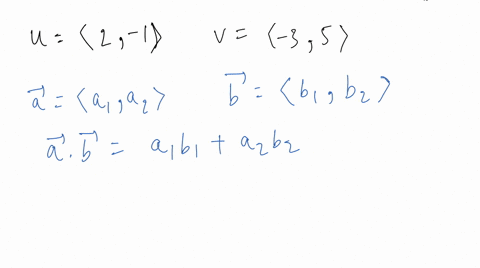 u = ⟨2, -1⟩ v = ⟨-3, 5⟩
a⃗ = ⟨a₁, a₂⟩ b⃗ = ⟨b₁, b₂⟩
a⃗ . b⃗ = a₁b₁ + a₂b₂